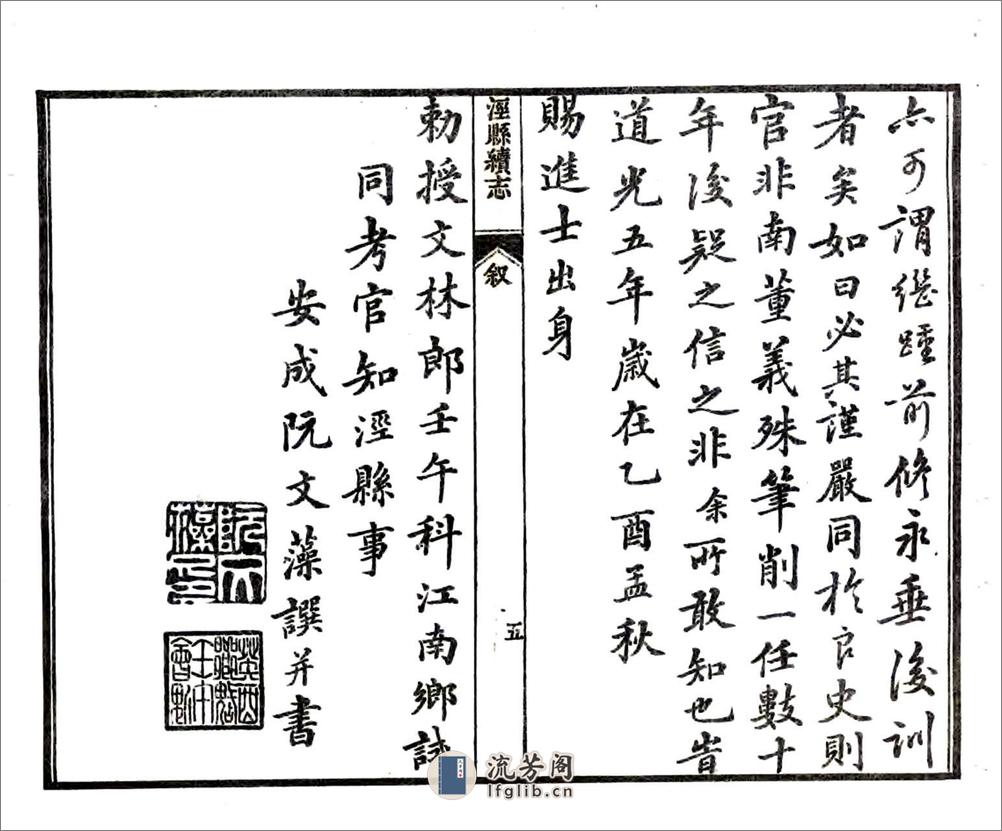 亦可謂繼踵前修永垂後訓
者矣如曰必其謹嚴同於良史則
官非南董義殊筆削一任數十
年後疑之信之非余所敢知也旹
道光五年歲在乙酉孟秋
賜進士出身
涇縣續志
叙
五
勅授文林郎壬午科江南鄉試
同考官知涇縣事
安成阮文藻譔并書
阮文藻印
流芳阁
lfglib.cn